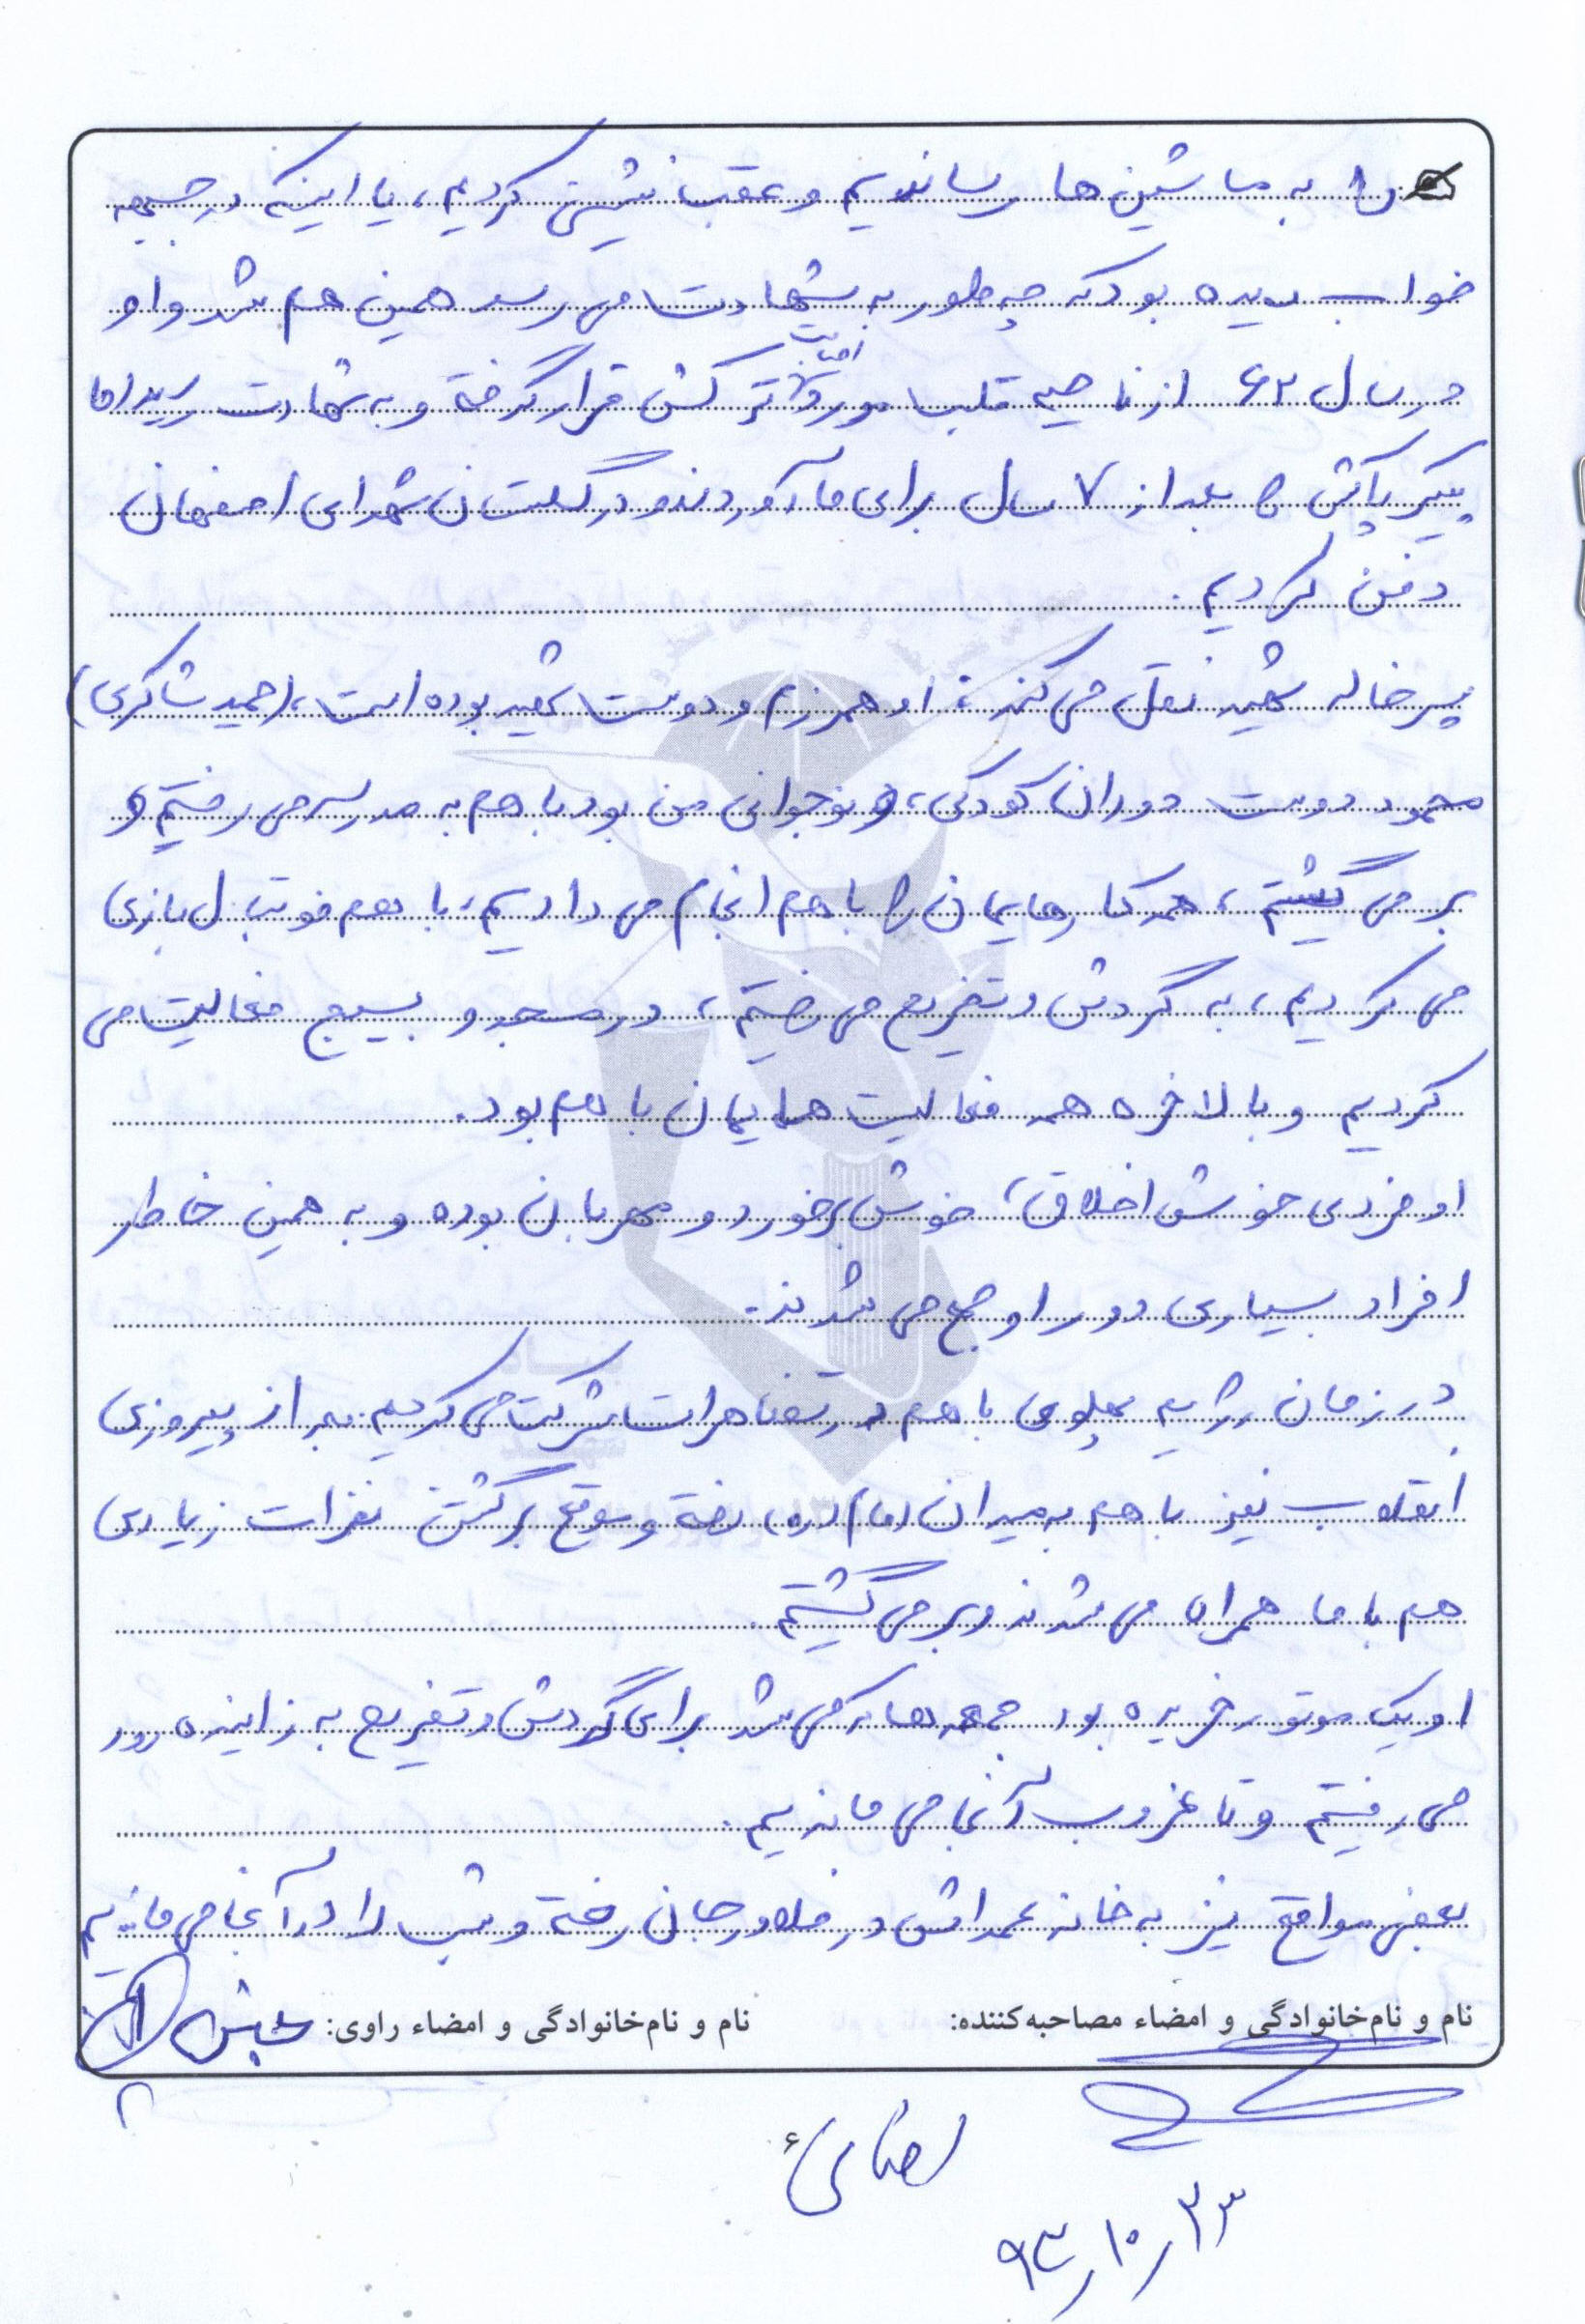 را به ماشین ها رساندیم و عقب نشینی کردیم، یا اینکه در جبهه
خواب دیده بود که چه طور به شهادت می رسد همین هم شد و او
در سال ۶۲ از ناحیه قلب مورد اصابت ترکش قرار گرفته و به شهادت رسید اما
پیکر پاکش را بعد از ۷ سال برای ما آوردند و در گلستان شهدای اصفهان
دفن کردیم.
پسر خاله شهید نقل می کند: او همرزم و دوست شهید بوده است، (حمید شاکری)
محمود دوست دوران کودکی، و نوجوانی من بود با هم به مدرسه می رفتیم و
بر می گشتیم، همه کارهایمان را با هم انجام می دادیم، با هم فوتبال بازی
می کردیم، به گردش و تفریح می رفتیم، در مسجد و بسیج فعالیت می
کردیم و بالاخره همه فعالیت هایمان با هم بود.
او فردی خوش اخلاق، خوش برخورد و مهربان بوده و به همین خاطر
افراد بسیاری دور او جمع می شدند.
در زمان رژیم پهلوی با هم در تظاهرات شرکت می کردیم. بعد از پیروزی
انقلاب نیز با هم به میدان امام (ره) رفته و موقع برگشتن نفرات زیادی
هم با ما همراه می شدند و بر می گشتیم.
او یک موتور خریده بود جمعه ها که می شد برای گردش و تفریح به زاینده رود
می رفتیم و تا غروب آنجا می ماندیم.
بعضی مواقع نیز به خانه عمه اش در فلاورجان رفته و شب را در آنجا می ماندیم
نام و نام‌خانوادگی و امضاء مصاحبه‌کننده:
نام و نام‌خانوادگی و امضاء راوی:
۹۳/۱۰/۲۳